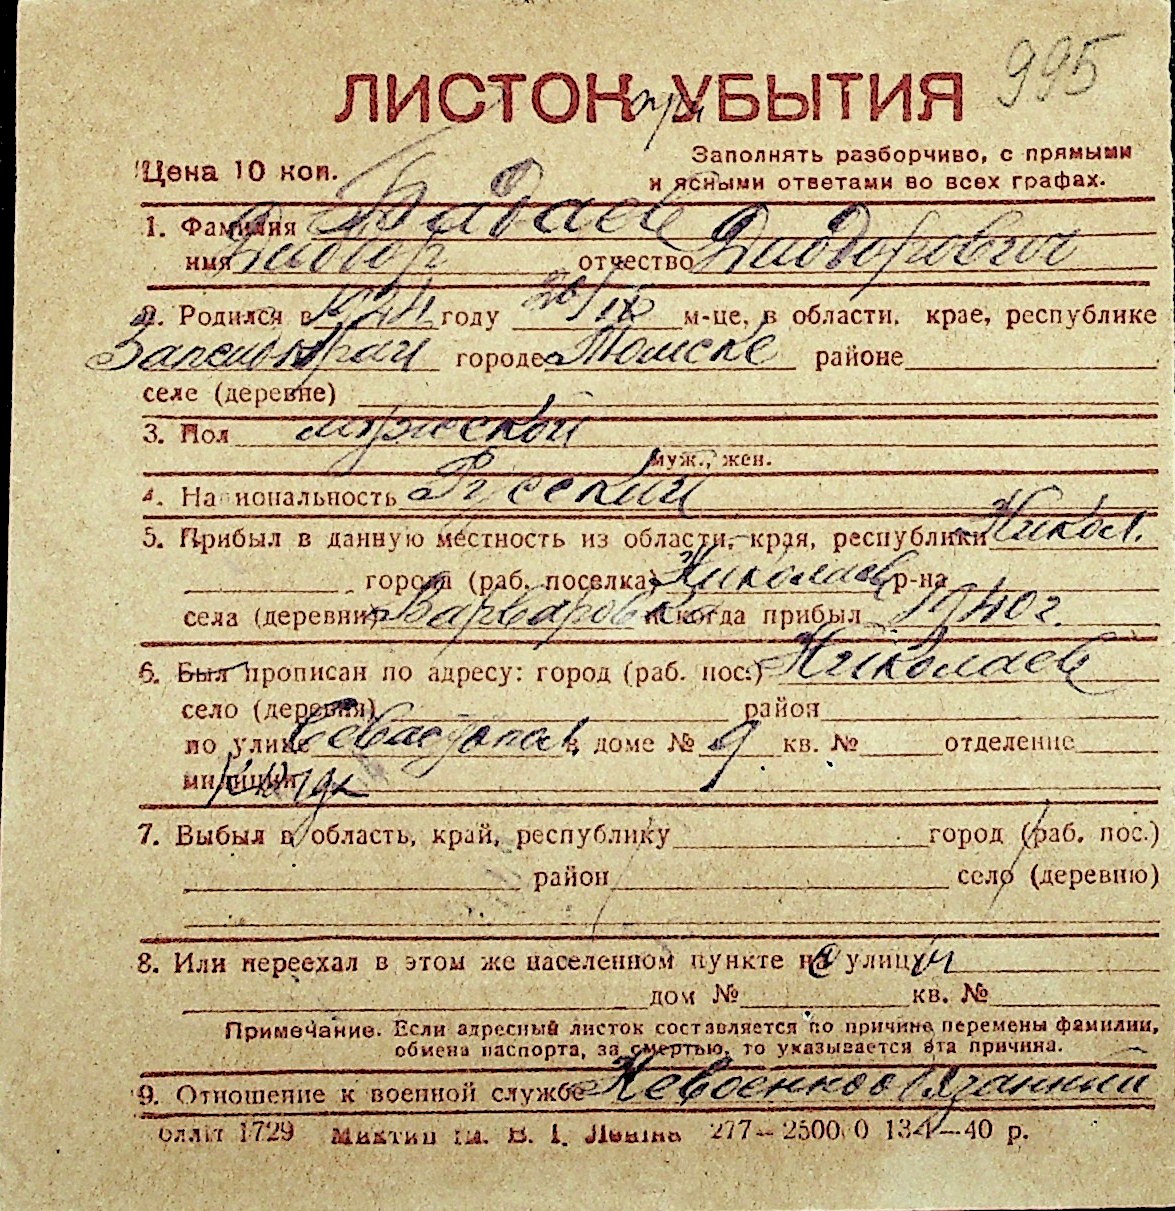 995
ЛИСТОК УБЫТИЯ
при
Цена 10 коп.
Заполнять разборчиво, с прямыми
и ясными ответами во всех графах.
1. Фамилия Бадаев
имя Диодор отчество Диодорович
2. Родился в 1924 году 26/IX м-це, в области, крае, республике
Запсибкрай городе Томске районе
селе (деревне)
3. Пол мужской
муж., жен.
4. Национальность Русский
5. Прибыл в данную местность из области, края, республики Никол.
города (раб. поселка) Николаев р-на
села (деревни) Варваровка и когда прибыл 1940 г.
6. Был прописан по адресу: город (раб. пос.) Николаев
село (деревня) район
по улице Севастопол. в доме № 9 кв. № отделение
милиции
7. Выбыл в область, край, республику город (раб. пос.)
район село (деревню)
8. Или переехал в этом же населенном пункте с улицы
дом № кв. №
Примечание. Если адресный листок составляется по причине перемены фамилии,
обмена паспорта, за смертью, то указывается эта причина.
9. Отношение к военной службе Невоеннообязанный
1729 им. В. І. Леніна 277—2500 0 134—40 р.